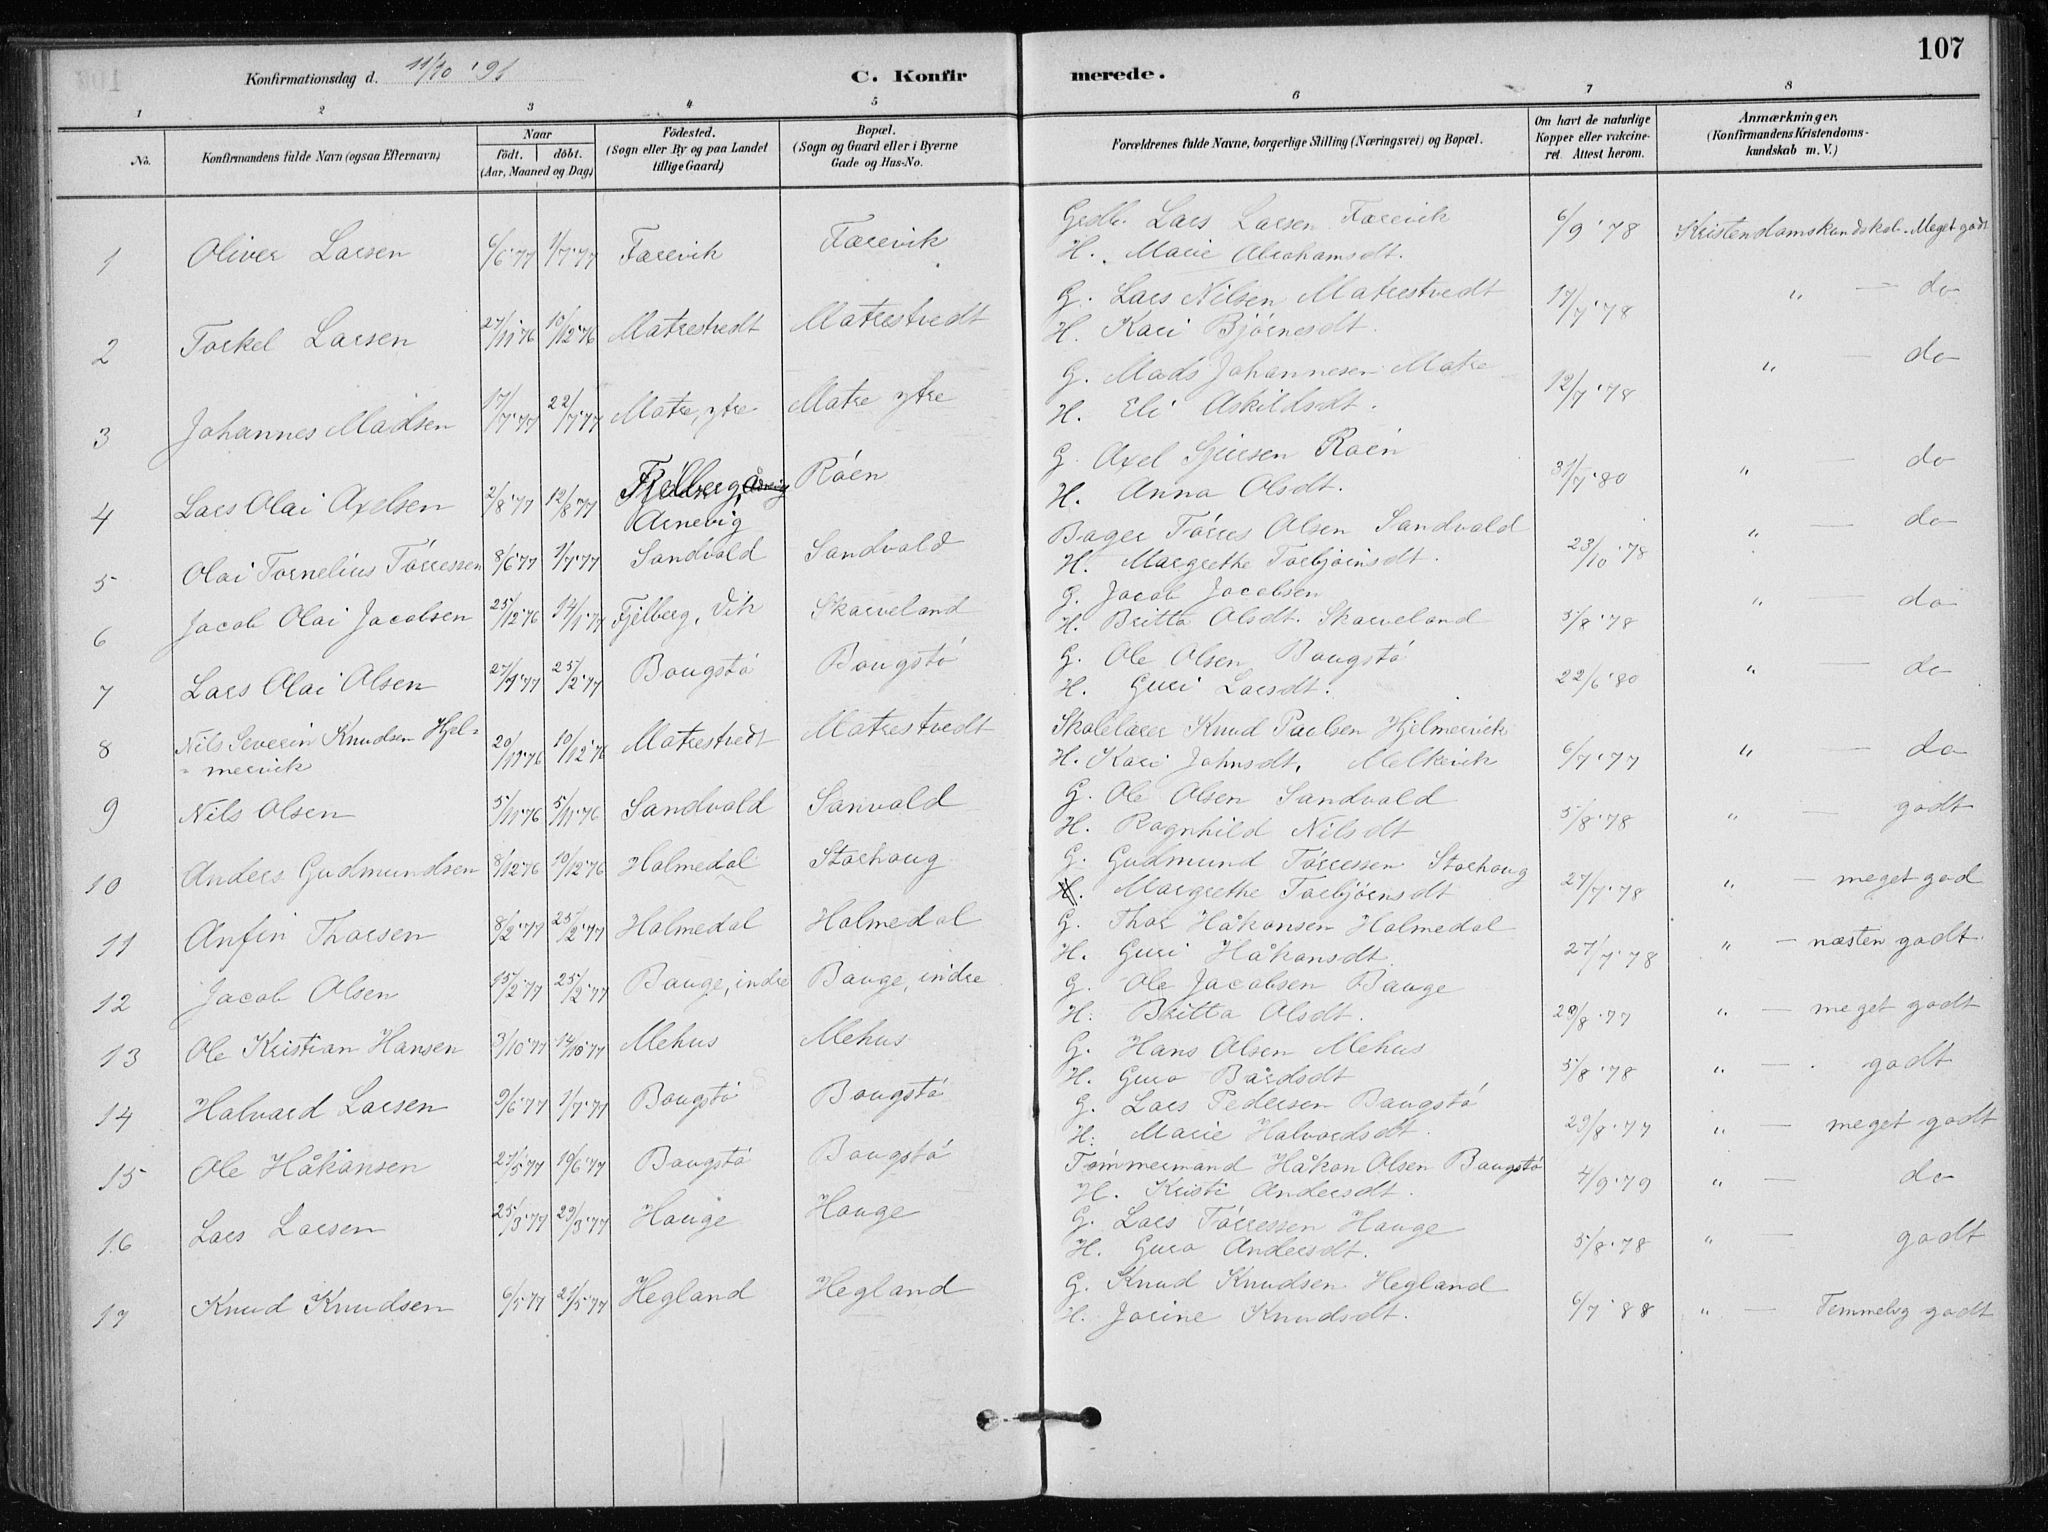 107
Konfirmationsdag d. 11/10 '91 C. Konfirmerede.
1 2 3 4 5 6 7 8
No. Konfirmandens fulde Navn (ogsaa Efternavn) Naar födt. döbt. (Aar, Maaned og Dag) Födested. (Sogn eller By og paa Landet tillige Gaard) Bopæl. (Sogn og Gaard eller i Byerne Gade og Hus-No. Forældrenes fulde Navne, borgerlige Stilling (Næringsvei) og Bopæl. Om havt de naturlige Kopper eller vakcineret. Attest herom. Anmærkninger. (Konfirmandens Kristendomskundskab m. V.)
1 Oliver Larsen 6/6 '77 1/7 '77 Farevik Farevik Grdb. Lars Larsen Farevik 6/9 '78 Kristendomskundskab - Meget godt
H. Marie Abrahamsdt.
2 Torkel Larsen 27/11 '76 10/12 '76 Matrestvedt Matrestvedt G. Lars Nilsen Matrestvedt 17/7 '78 " — do
H. Kari Bjørnesdt.
3 Johannes Madsen 17/7 '77 22/7 '77 Matre, ytre Matre ytre G. Mads Johannesen Matre 12/7 '78 " — do
H. Eli Askildsdt.
4 Lars Olai Axelsen 2/8 '77 12/8 '77 Fjelberg, Arnevig Røen G. Axel Sjursen Røen 31/7 '80 " — do
H. Anna Olsdt.
5 Olai Tornelius Tørressen 8/6 '77 1/7 '77 Sandvald Sandvald Bager Tørres Olsen Sandvald 23/10 '78 " — do
H. Margrethe Torbjørnsdt.
6 Jacob Olai Jacobsen 25/12 '76 14/1 '77 Fjelberg, Vik Skarveland G. Jacob Jacobsen 5/8 '78 " — do
H. Britta Olsdt. Skarveland
7 Lars Olai Olsen 27/1 '77 25/2 '77 Baugstø Baugstø G. Ole Olsen Baugstø 22/6 '80 " — do
H. Guri Larsdt.
8 Nils Severin Knudsen Hjel- 20/11 '76 10/12 '76 Matrestvedt Matrestvedt Skolelærer Knud Paulsen Hjelmervik 6/7 '77 " — do
- mervik H. Kari Johnsdt, Melkevik
9 Nils Olsen 5/11 '76 5/11 '76 Sandvald Sanvald G. Ole Olsen Sandvald 5/8 '78 " — godt
H. Ragnhild Nilsdt
10 Anders Gudmundsen 8/12 '76 10/12 '76 Holmedal Storhaug G. Gudmund Tørressen Storhaug 27/7 '78 " — meget god
H. Margrethe Torbjørnsdt
11 Anfin Thorsen 8/2 '77 25/2 '77 Holmedal Holmedal G. Thor Håkonsen Holmedal 27/7 '78 " — næsten godt
H. Guri Håkonsdt.
12 Jacob Olsen 15/2 '77 25/2 '77 Bauge, indre Bauge, indre G. Ole Jacobsen Bauge 29/8 '77 " — meget godt
H. Britta Olsdt.
13 Ole Kristian Hansen 3/10 '77 14/10 '77 Mehus Mehus G. Hans Olsen Mehus 5/8 '78 " — godt
H. Guro Bårdsdt
14 Halvard Larsen 9/6 '77 1/7 '77 Baugstø Baugstø G. Lars Pedersen Baugstø 29/8 '77 " — meget godt
H. Marie Halvardsdt.
15 Ole Håkonsen 27/5 '77 10/6 '77 Baugstø Baugstø Tømmermand Håkon Olsen Baugstø 4/9 '79 " — do
H. Kristi Andersdt.
16 Lars Larsen 25/3 '77 29/3 '77 Hauge Hauge G. Lars Tørressen Hauge 5/8 '78 " — godt
H. Guro Andersdt.
17 Knud Knudsen 6/5 '77 21/5 '77 Hegland Hegland G. Knud Knudsen Hegland 6/7 '88 " — Temmelig godt
H. Josine Knudsdt.